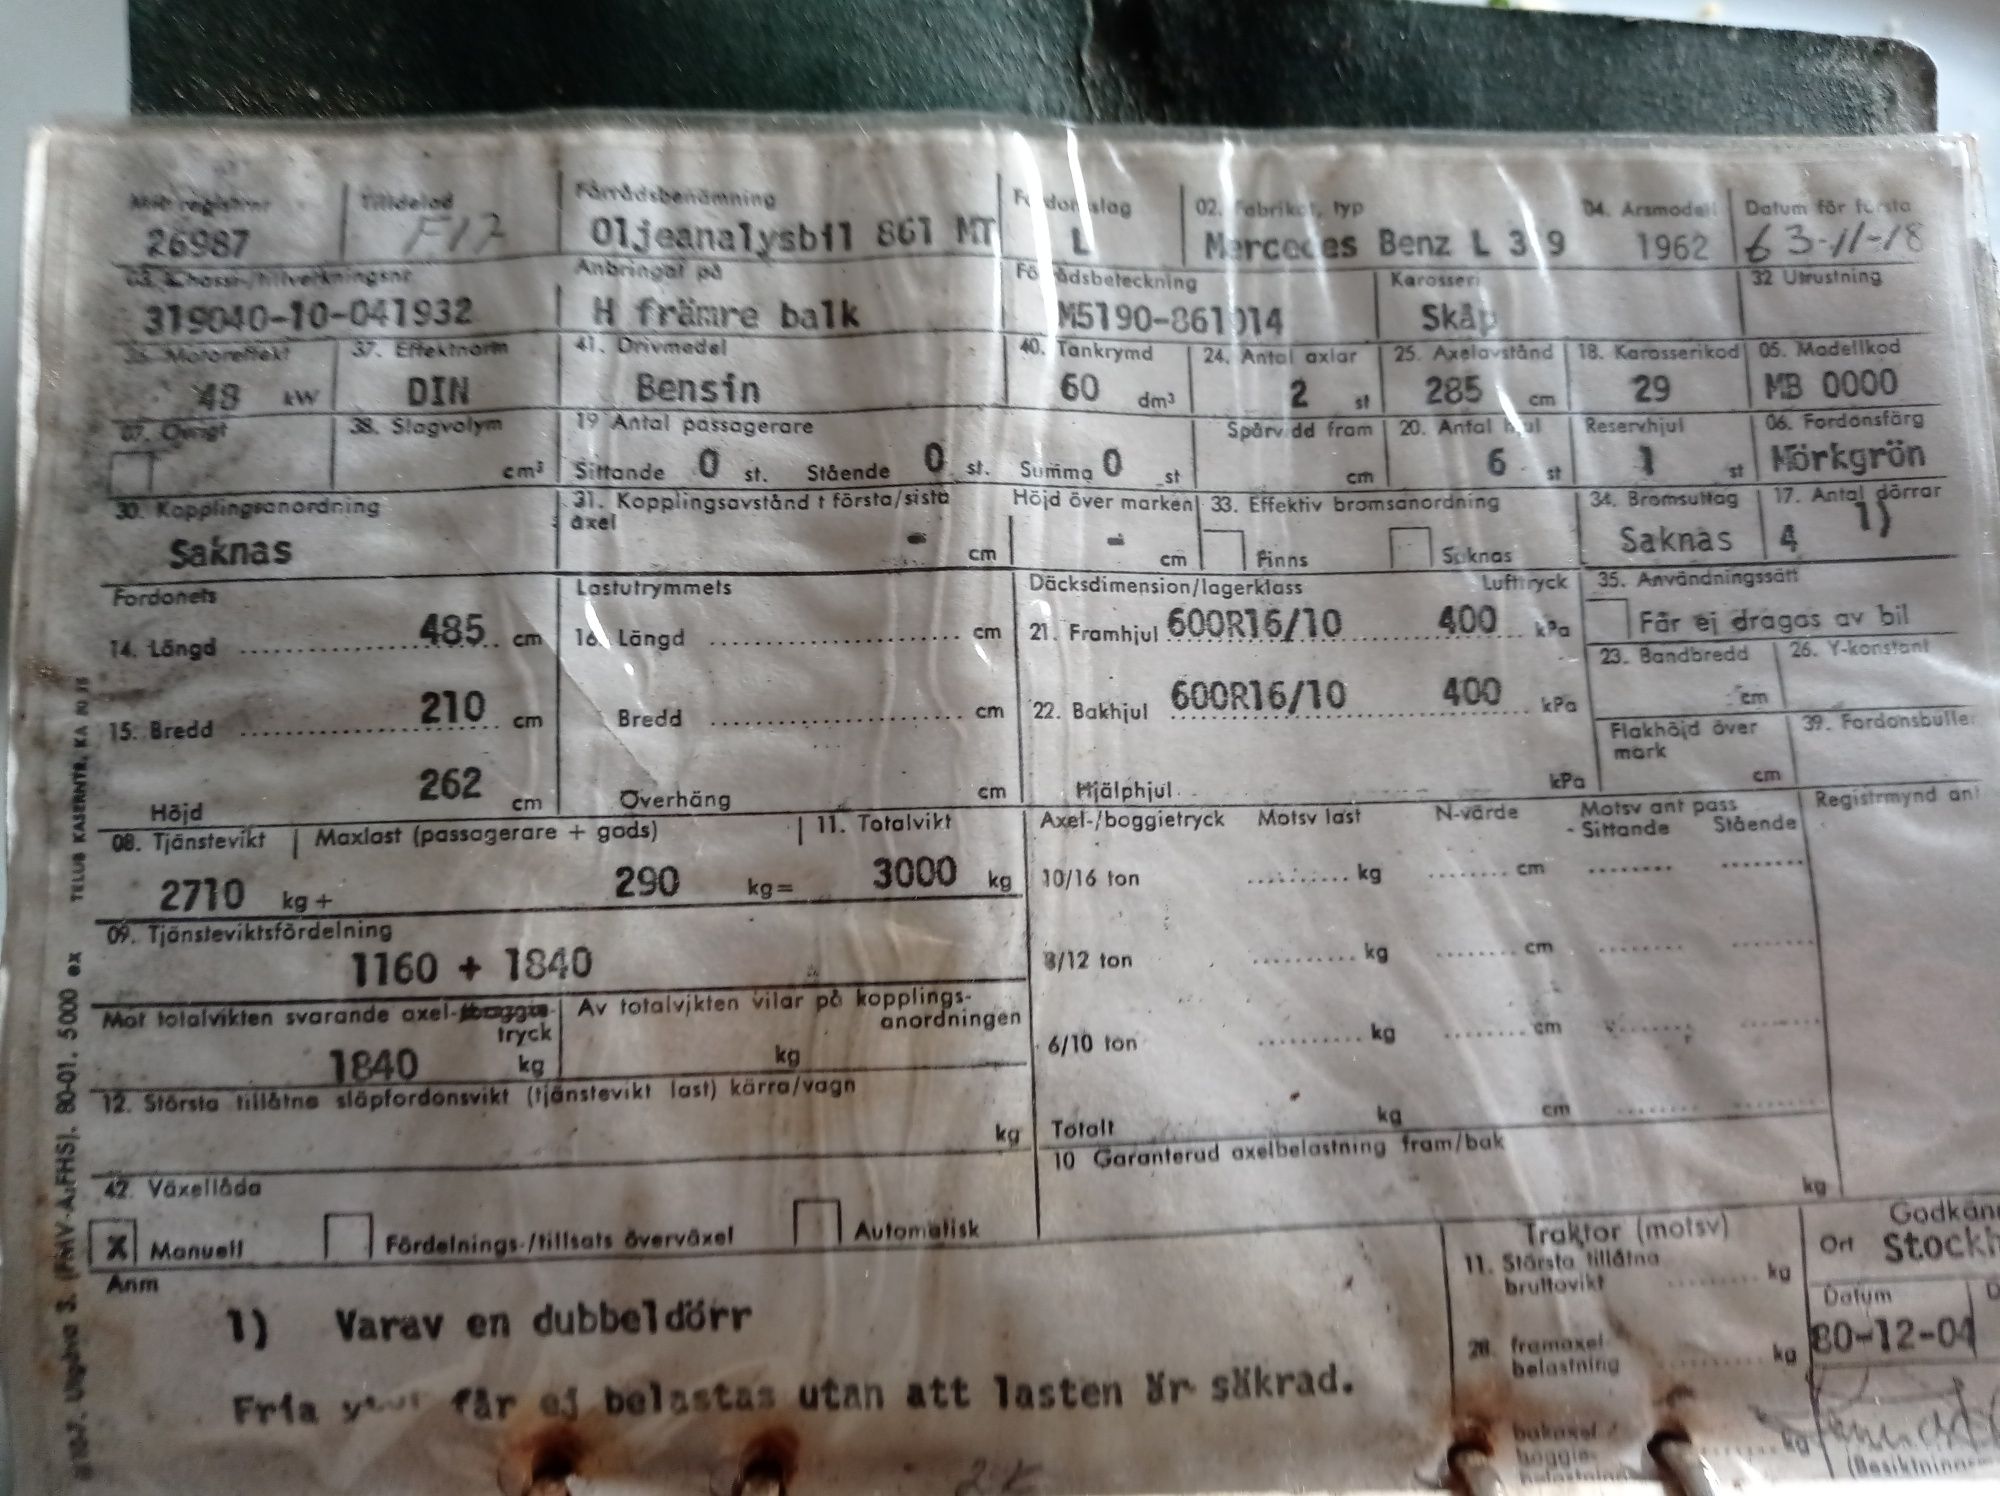 Mil registrnr Tilldelad Förrådsbenämning Fordonslag 02. Fabrikat, typ 04. Årsmodell Datum för första
26987 F17 Oljeanalysbil 861 MT L Mercedes Benz L 3 9 1962 63-11-18
03. Chassi-/tillverkningsnr Anbringat på Förrådsbeteckning Karosseri 32 Utrustning
319040-10-041932 H främre balk M5190-861014 Skåp
36. Motoreffekt 37. Effektnorm 41. Drivmedel 40. Tankrymd 24. Antal axlar 25. Axelavstånd 18. Karosserikod 05. Modellkod
48 kW DIN Bensin 60 dm³ 2 st 285 cm 29 MB 0000
07. Övrigt 38. Slagvolym 19 Antal passagerare Spårvidd fram 20. Antal hjul Reservhjul 06. Fordonsfärg
cm³ Sittande 0 st. Stående 0 st. Summa 0 st cm 6 st 1 st Mörkgrön
30. Kopplingsanordning 31. Kopplingsavstånd t första/sista Höjd över marken 33. Effektiv bromsanordning 34. Bromsuttag 17. Antal dörrar
axel
Saknas - cm - cm Finns Saknas Saknas 4 1)
Fordonets Lastutrymmets Däcksdimension/lagerklass Lufttryck 35. Användningssätt
14. Längd 485 cm 16. Längd cm 21. Framhjul 600R16/10 400 kPa Får ej dragas av bil
23. Bandbredd 26. Y-konstant
cm
15. Bredd 210 cm Bredd cm 22. Bakhjul 600R16/10 400 kPa
Flakhöjd över 39. Fordonsbuller
mark
cm
Höjd 262 cm Överhäng cm Hjälphjul kPa
08. Tjänstevikt Maxlast (passagerare + gods) 11. Totalvikt Axel-/boggietryck Motsv last N-värde Motsv ant pass Registrmynd ant
- Sittande Stående
2710 kg + 290 kg = 3000 kg 10/16 ton kg cm
09. Tjänsteviktsfördelning
1160 + 1840 8/12 ton kg cm
Mot totalvikten svarande axel- Av totalvikten vilar på kopplings-
tryck anordningen
1840 kg kg 6/10 ton kg cm
12. Största tillåtna släpfordonsvikt (tjänstevikt last) kärra/vagn
kg Totalt kg cm
10 Garanterud axelbelastning fram/bak
kg
42. Växellåda
X Manuell Fördelnings-/tillsats överväxel Automatisk
Traktor (motsv) Godkän
11. Största tillåtna Ort Stockh
bruttovikt kg
Anm Datum
1) Varav en dubbeldörr 80-12-04
28. framaxel- kg
belastning
Fria får ej belastas utan att lasten är säkrad.
bakaxel/ kg
boggie-
belastning
TELUB KASERNTR, KA
Utgåva 3. (FMV-A:FHS). 80-01. 5 000 ex